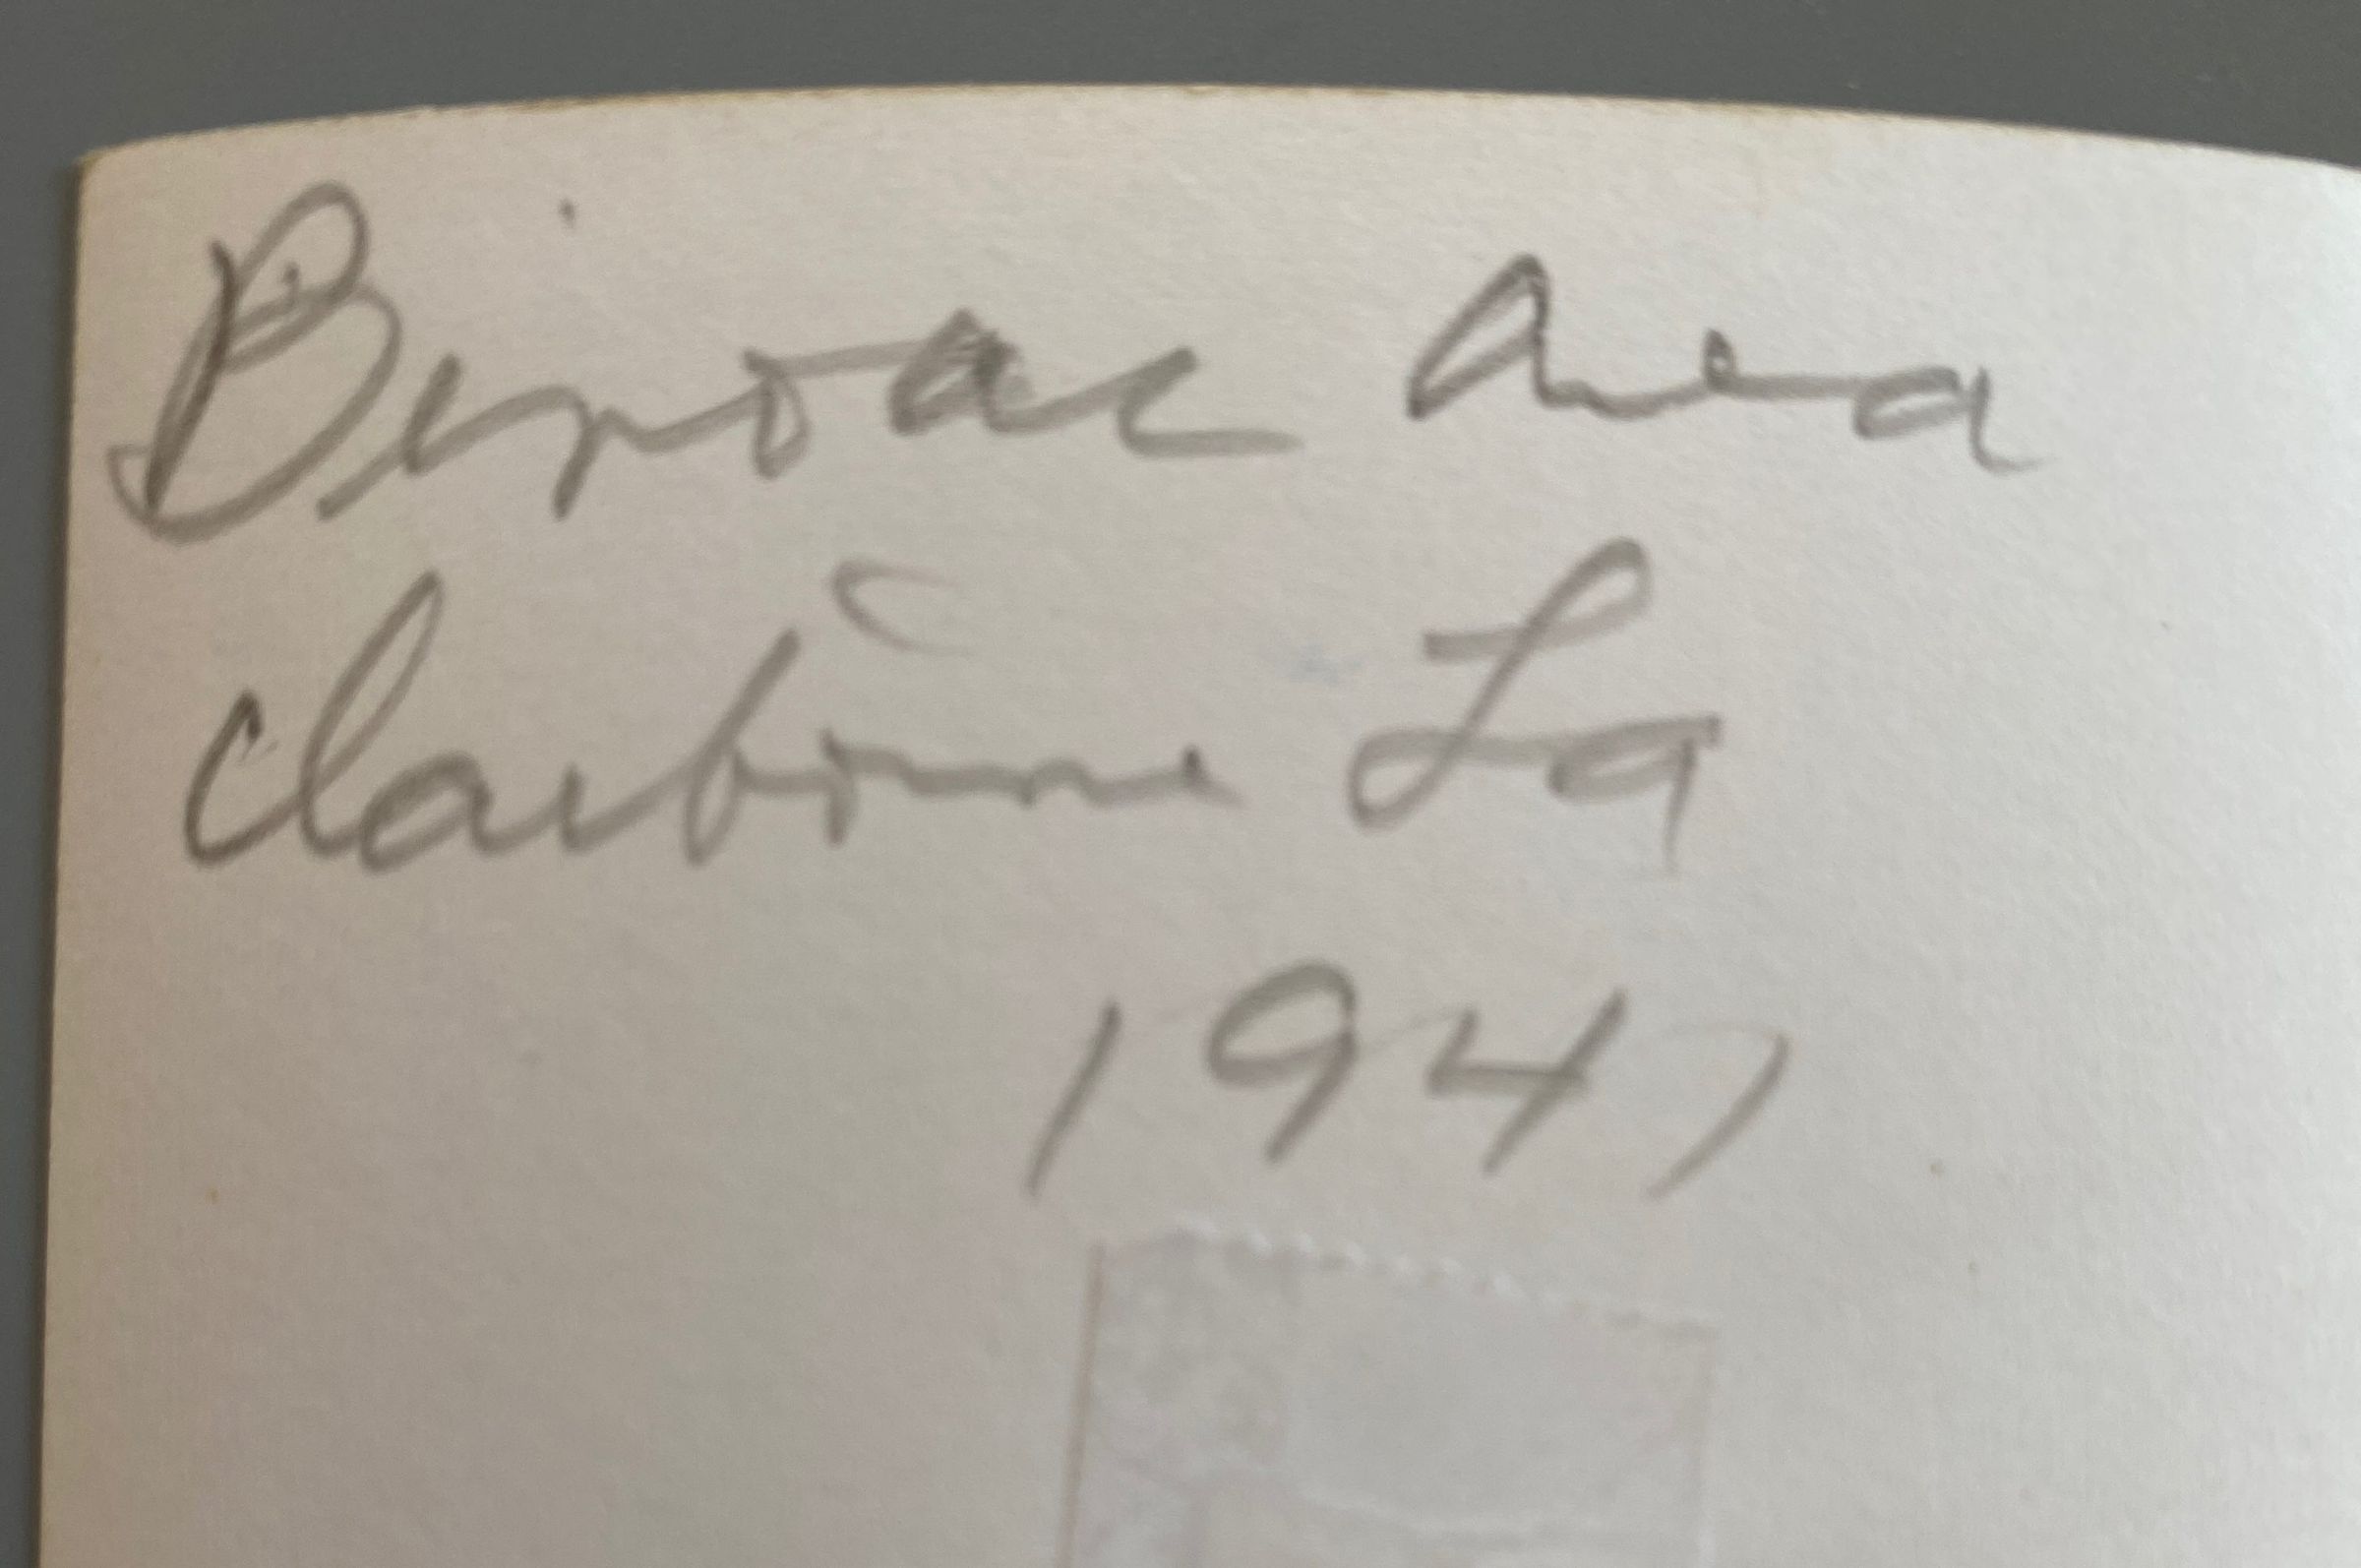 Bivoac Area
Claiborne La
1941